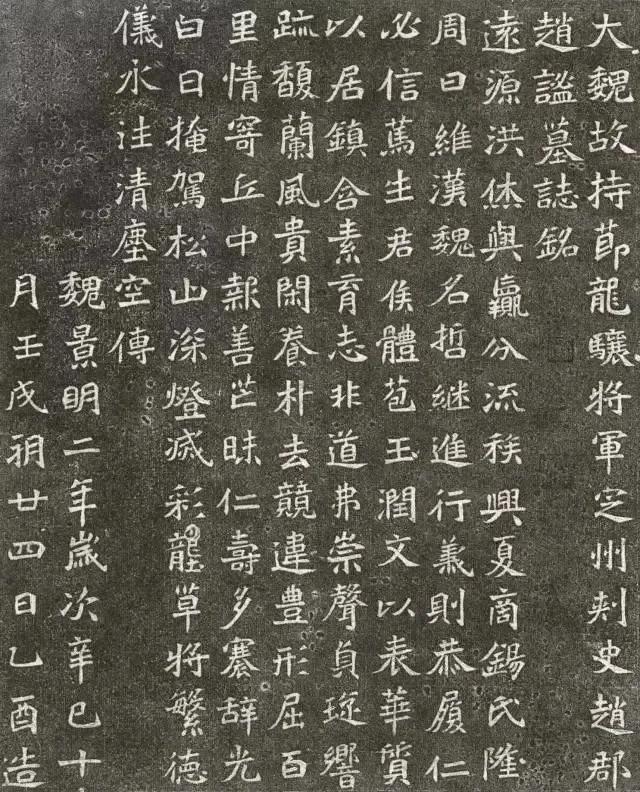 大魏故持節龍驤將軍定州刺史趙郡
趙謐墓誌銘
遠源洪休與贏分流族興夏商錫氏隆
周曰維漢魏名哲継進行兼則恭履仁
必信篤生君侯體苞玉潤文以表華質
以居鎮含素育志非道弗崇聲貞琁響
跡馥蘭風貴閑養朴去競違豊形屈百
里情寄丘中報善芒昧仁壽多褰辞光
白日掩駕松山深燈滅彩壠草將繁德
儀永注清塵空傳
魏景明二年歲次辛巳十
月壬戌朔廿四日乙酉造